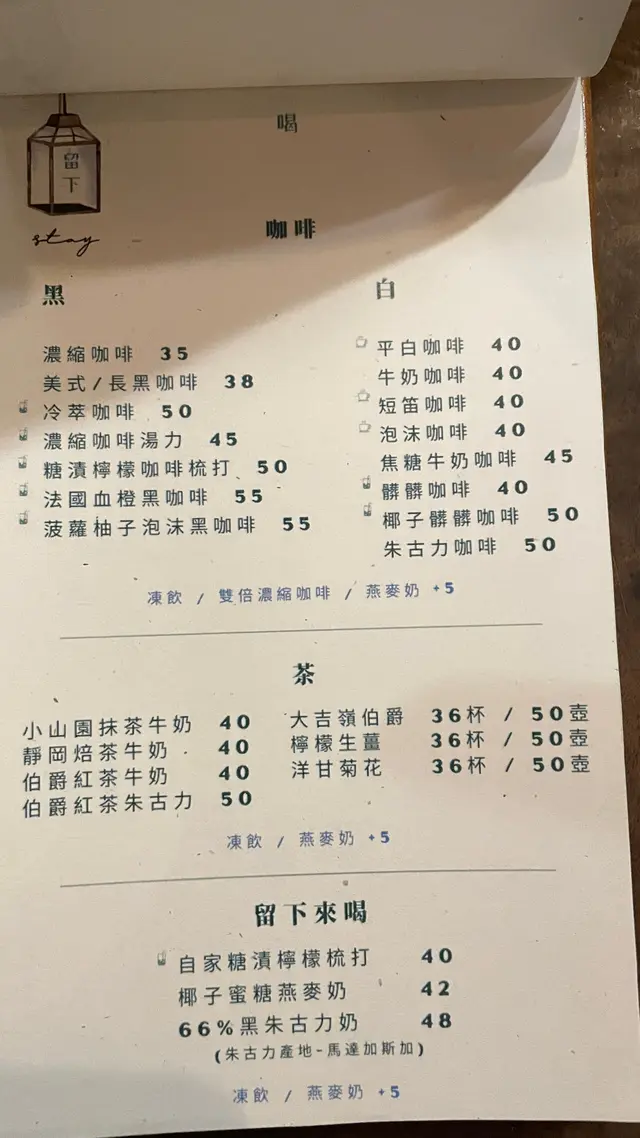 留
下
stay
喝
咖啡
黑
濃縮咖啡 35
美式/長黑咖啡 38
冷萃咖啡 50
濃縮咖啡湯力 45
糖漬檸檬咖啡梳打 50
法國血橙黑咖啡 55
菠蘿柚子泡沫黑咖啡 55
白
平白咖啡 40
牛奶咖啡 40
短笛咖啡 40
泡沫咖啡 40
焦糖牛奶咖啡 45
髒髒咖啡 40
椰子髒髒咖啡 50
朱古力咖啡 50
凍飲 / 雙倍濃縮咖啡 / 燕麥奶 +5
茶
小山園抹茶牛奶 40
靜岡焙茶牛奶 40
伯爵紅茶牛奶 40
伯爵紅茶朱古力 50
大吉嶺伯爵 36杯 / 50壺
檸檬生薑 36杯 / 50壺
洋甘菊花 36杯 / 50壺
凍飲 / 燕麥奶 +5
留下來喝
自家糖漬檸檬梳打 40
椰子蜜糖燕麥奶 42
66%黑朱古力奶 48
(朱古力產地-馬達加斯加)
凍飲 / 燕麥奶 +5